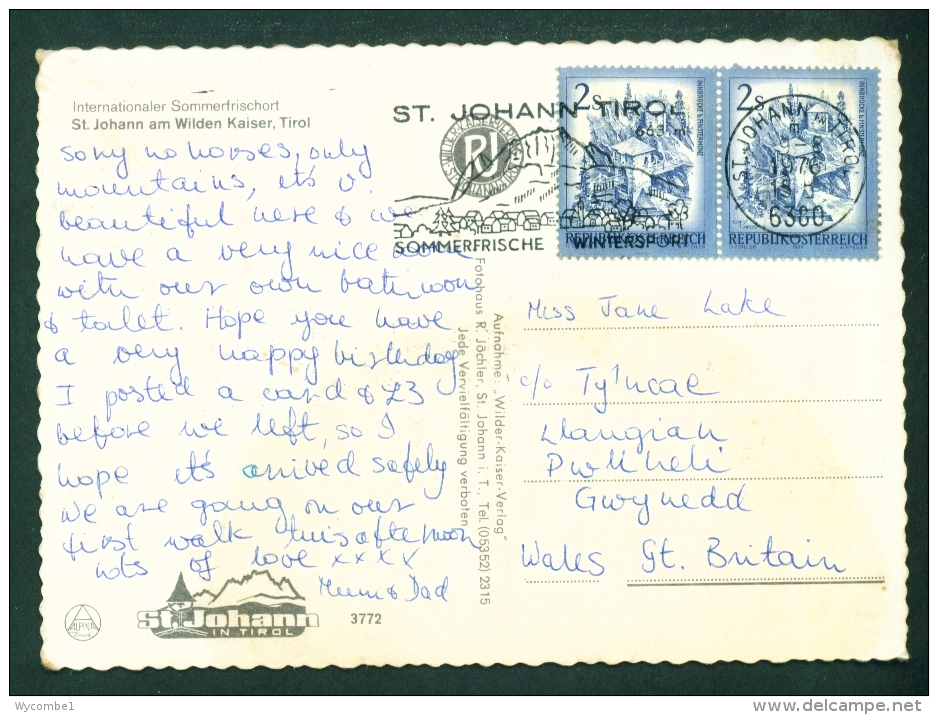 Internationaler Sommerfrischort
St. Johann am Wilden Kaiser, Tirol
Sorry no horses, only
mountains, it's v.
beautiful here & we
have a very nice room
with our own bathroom
& toilet. Hope you have
a very happy birthday
I posted a card & £3
before we left, so I
hope it's arrived safely
We are going on our
first walk this afternoon
lots of love xxxx
Mum & Dad
St. Johann
IN TIROL
3772
ALPINA
ST. JOHANN TIROL
663 m
SOMMERFRISCHE
WINTERSPORT
2S
REPUBLIK ÖSTERREICH
2S
REPUBLIK ÖSTERREICH
ST. JOHANN in TIROL
1976
6380
Aufnahme: „Wilder-Kaiser-Verlag"
Fotohaus R. Jöchler, St. Johann i. T., Tel. (05352) 2315
Jede Vervielfältigung verboten
Miss Jane Lake
c/o Ty'ncae
Llangian
Pwllheli
Gwynedd
Wales Gt. Britain
Wycombe1
delcampe.net